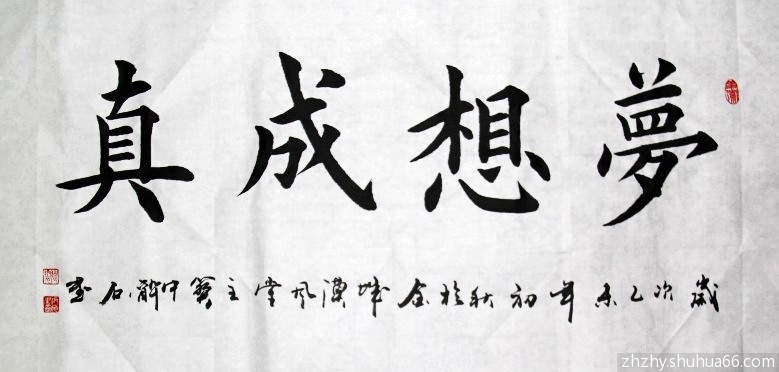 夢想成真
歲次乙未年初秋於金城漢風堂主寶中醉石書
zhzhy.shuhua66.com